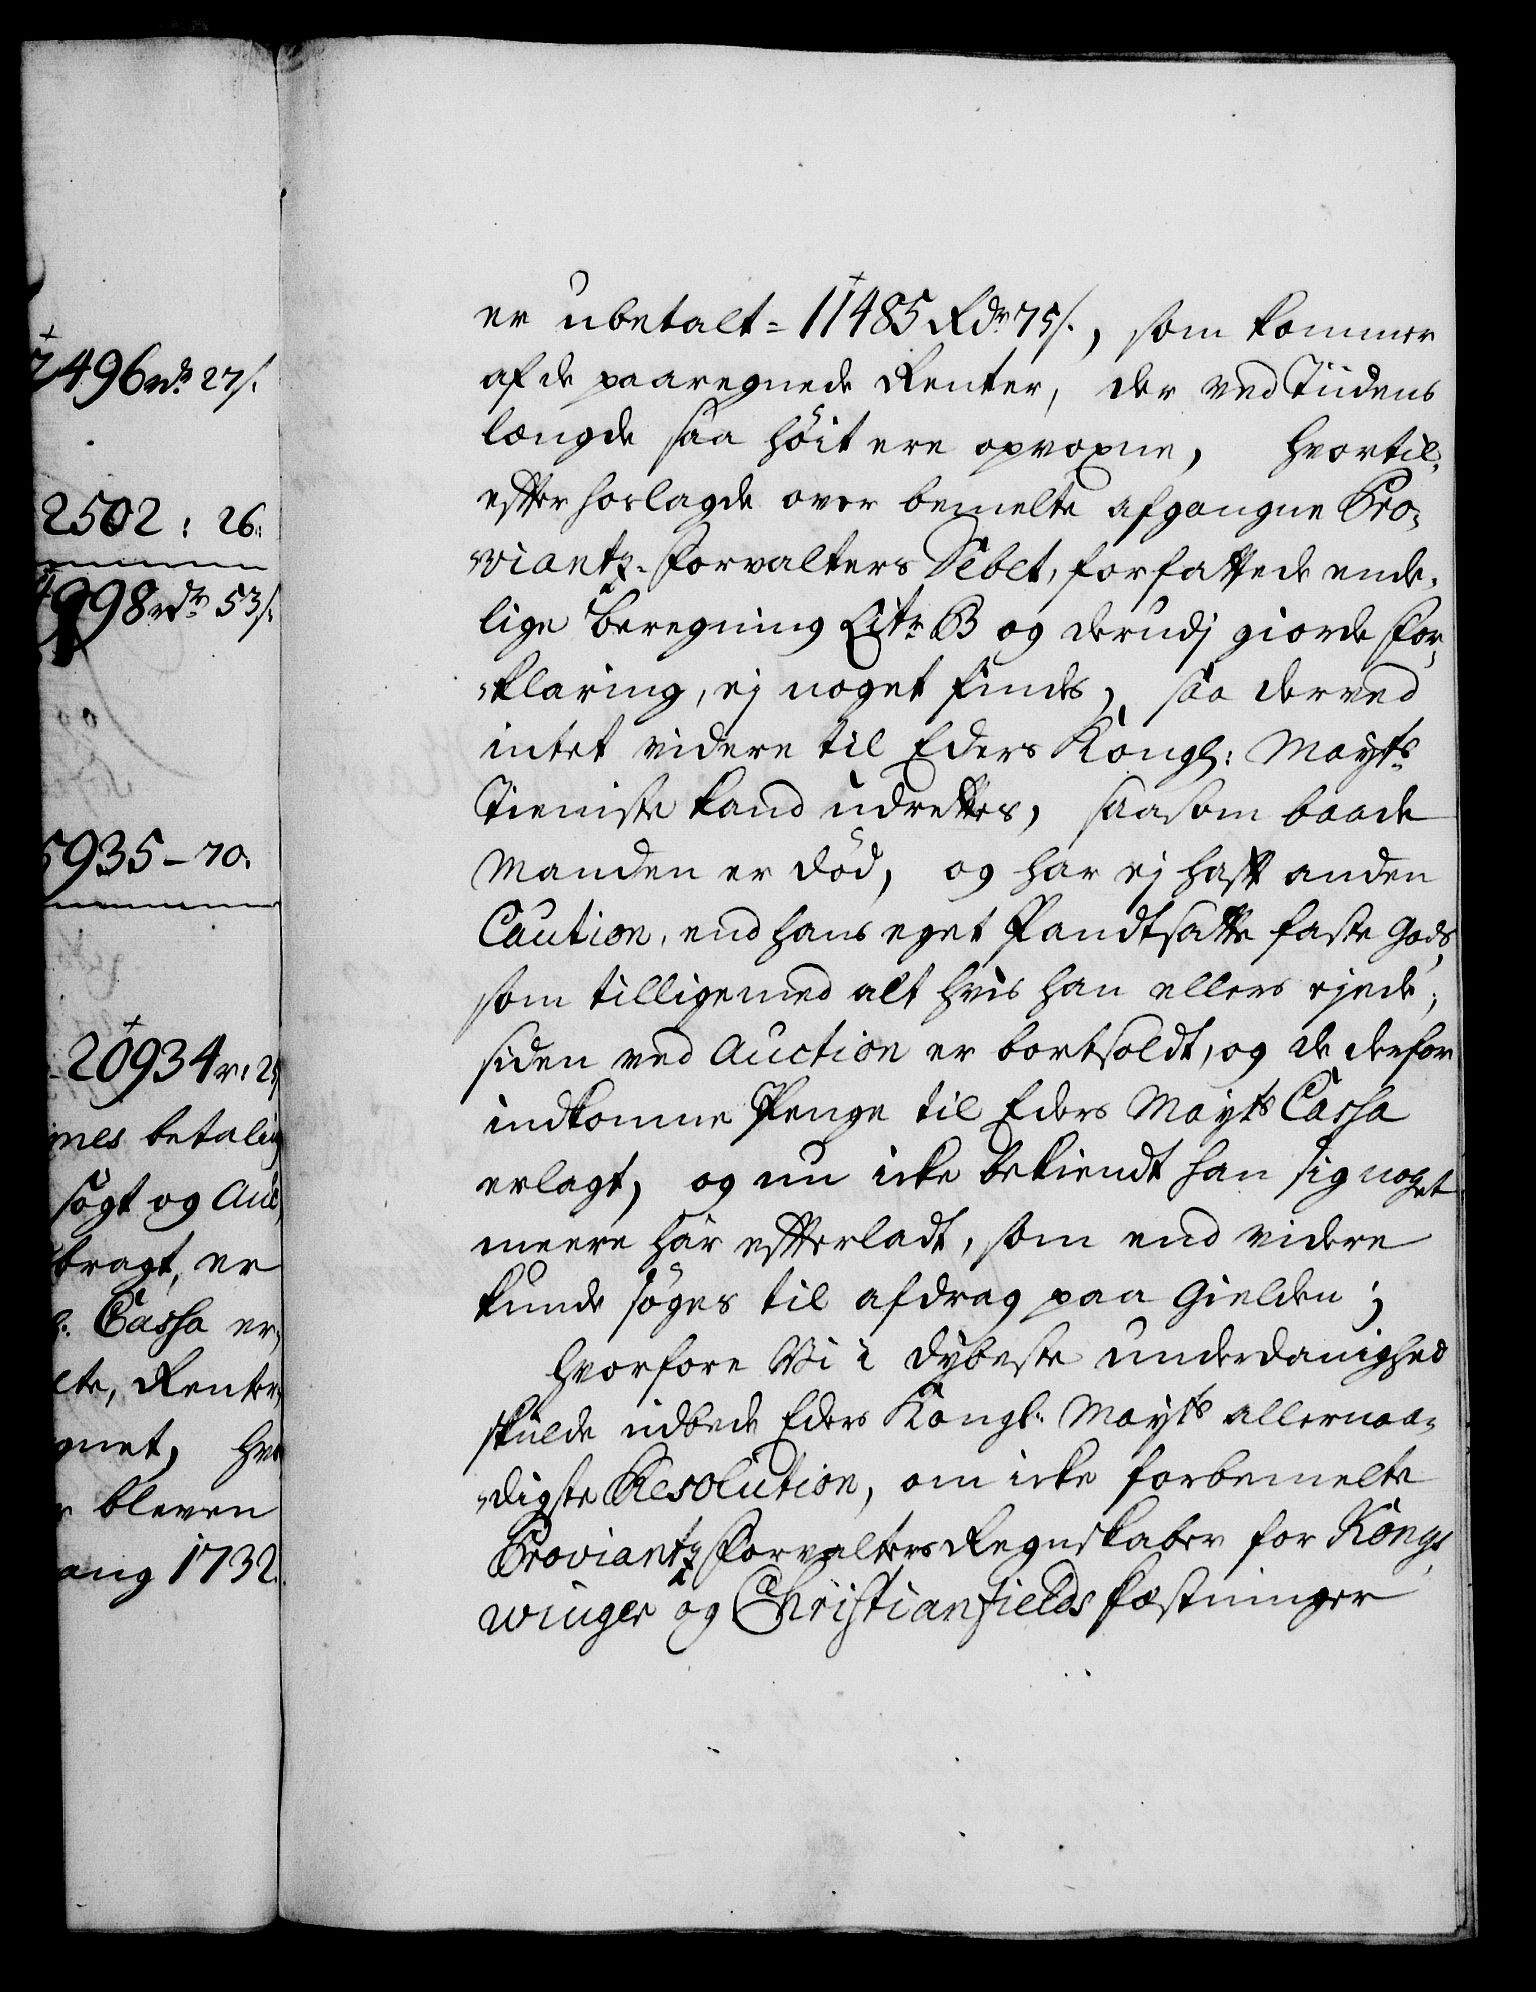 2496 rdr 27/.
2502 : 26:
998 rdr 53/.
5935 – 70.
20934 r: 2
nes betaling
søgt og Auc
bragt, er
Cassa er
lte, Renter
gnet, hvo
bleven
ang 1732.
er ubetalt = 11485 Rdr 75/., som kommer
af de paaregnede Renter, der ved Tiidens
længde saa høit ere opvoxne, hvortil,
efter hoslagde over bemelte afgangne Pro,
viantz-Forvalters Debet, forfattede ende,
lige beregning Litr B og derudj giorde For,
klaring, ej noget findes, saa derved
intet videre til Eders Kongl: Mayts
Tieniste kand udrettes, saasom baade
Manden er død, og har ej haft anden
Caution, end hans eget Pandtsatte faste Gods,
som tilligemed alt hvis han ellers ejede,
siden ved Auction er bortsoldt, og de derfor
indkomne Penge til Eders Mayts Cassa
erlagt, og nu icke bekiendt han sig noget
meere har efterladt, som end videre
kunde søges til afdrag paa Gielden;
Hvorfore Vi i dybeste underdanighed
skulde udbede Eders Kongl: Mayts allernaa,
digste Resolution, om icke forbemelte
Proviantz Forvalters Regnskaber for Kongs,
winger og Christianfields Fæstninger